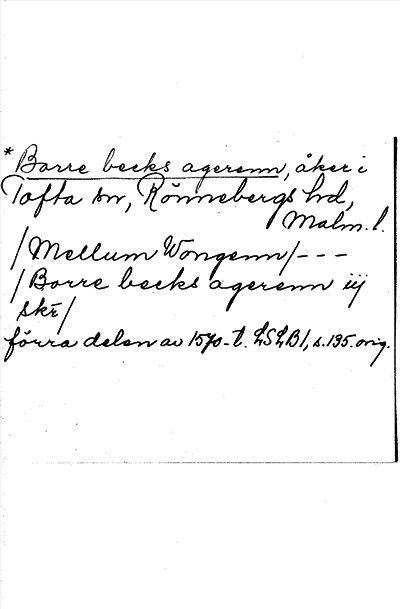 * Borre becks agerenn, åker i
Tofta sn, Rönnebergs hd,
Malm. l.
/Mellum Wongenn/ - - -
/Borre becks agerenn iij
skr/
förra delen av 1570-t. LSLB1, s. 135. orig.